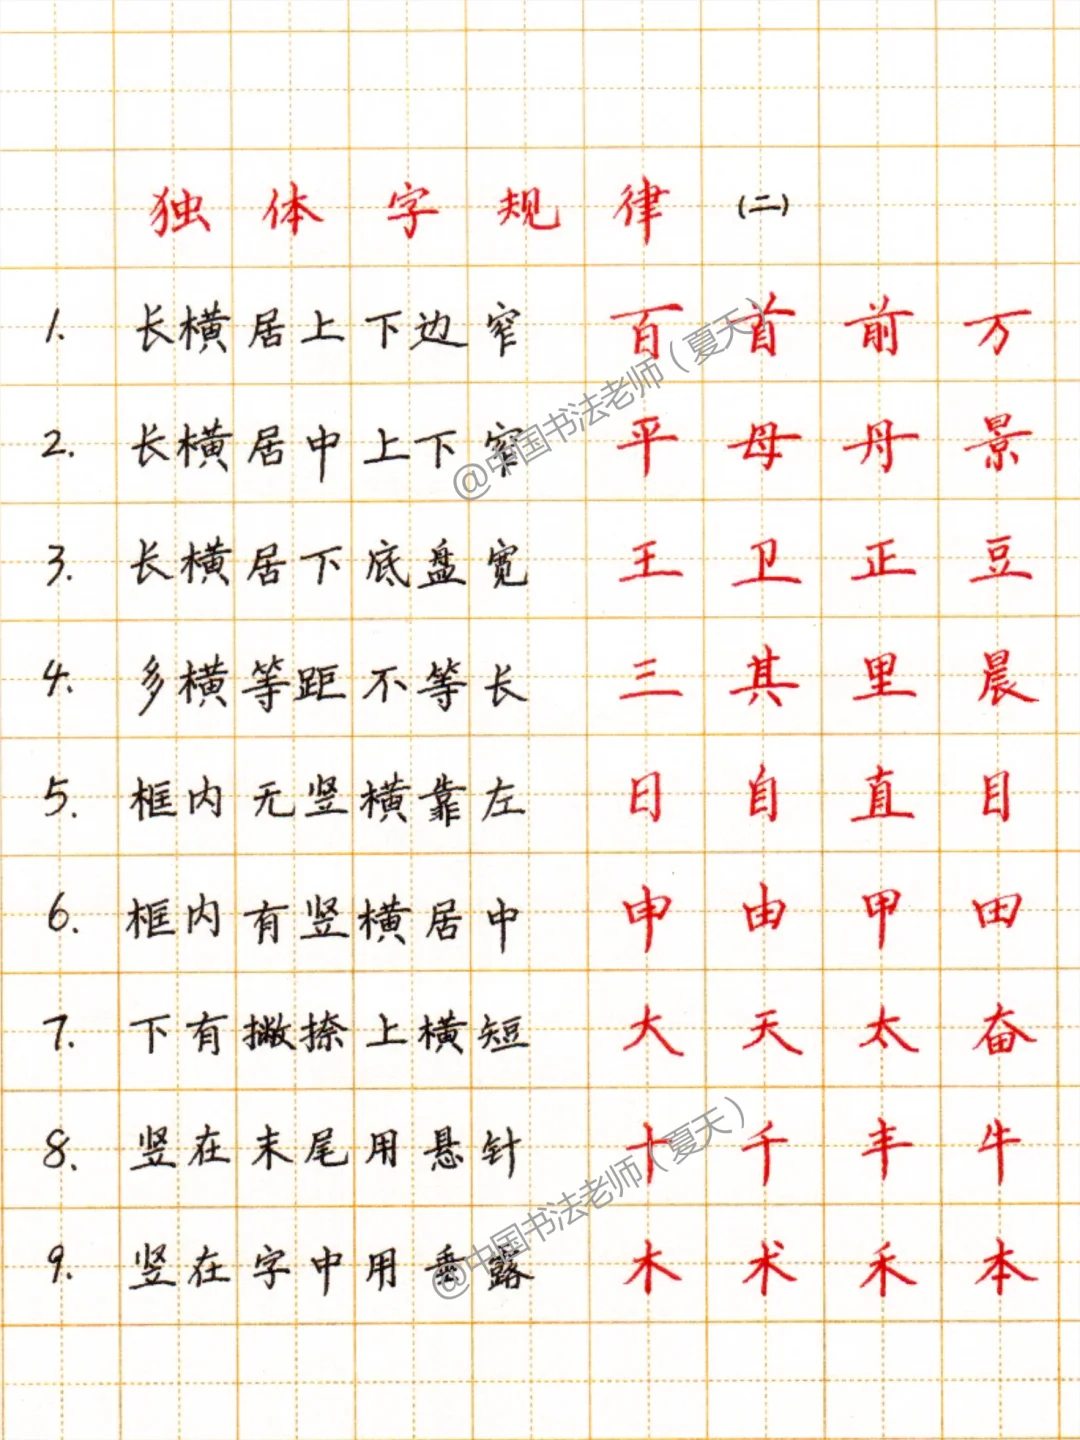 独体字规律（二）
1. 长横居上下边窄 百 首 前 万
2. 长横居中上下窄 平 母 丹 景
3. 长横居下底盘宽 王 卫 正 豆
4. 多横等距不等长 三 其 里 晨
5. 框内无竖横靠左 日 自 直 目
6. 框内有竖横居中 申 由 甲 田
7. 下有撇捺上横短 大 天 太 奋
8. 竖在末尾用悬针 十 千 丰 牛
9. 竖在字中用垂露 木 术 禾 本
@中国书法老师（夏天）
@中国书法老师（夏天）